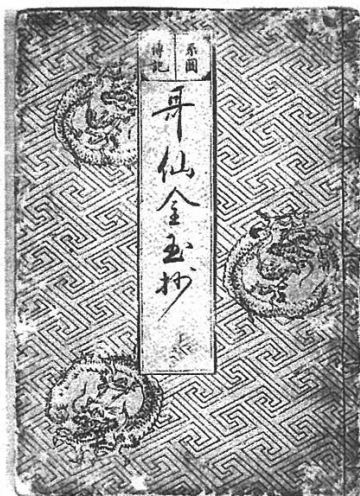 系圖
傳記
哥仙金玉抄